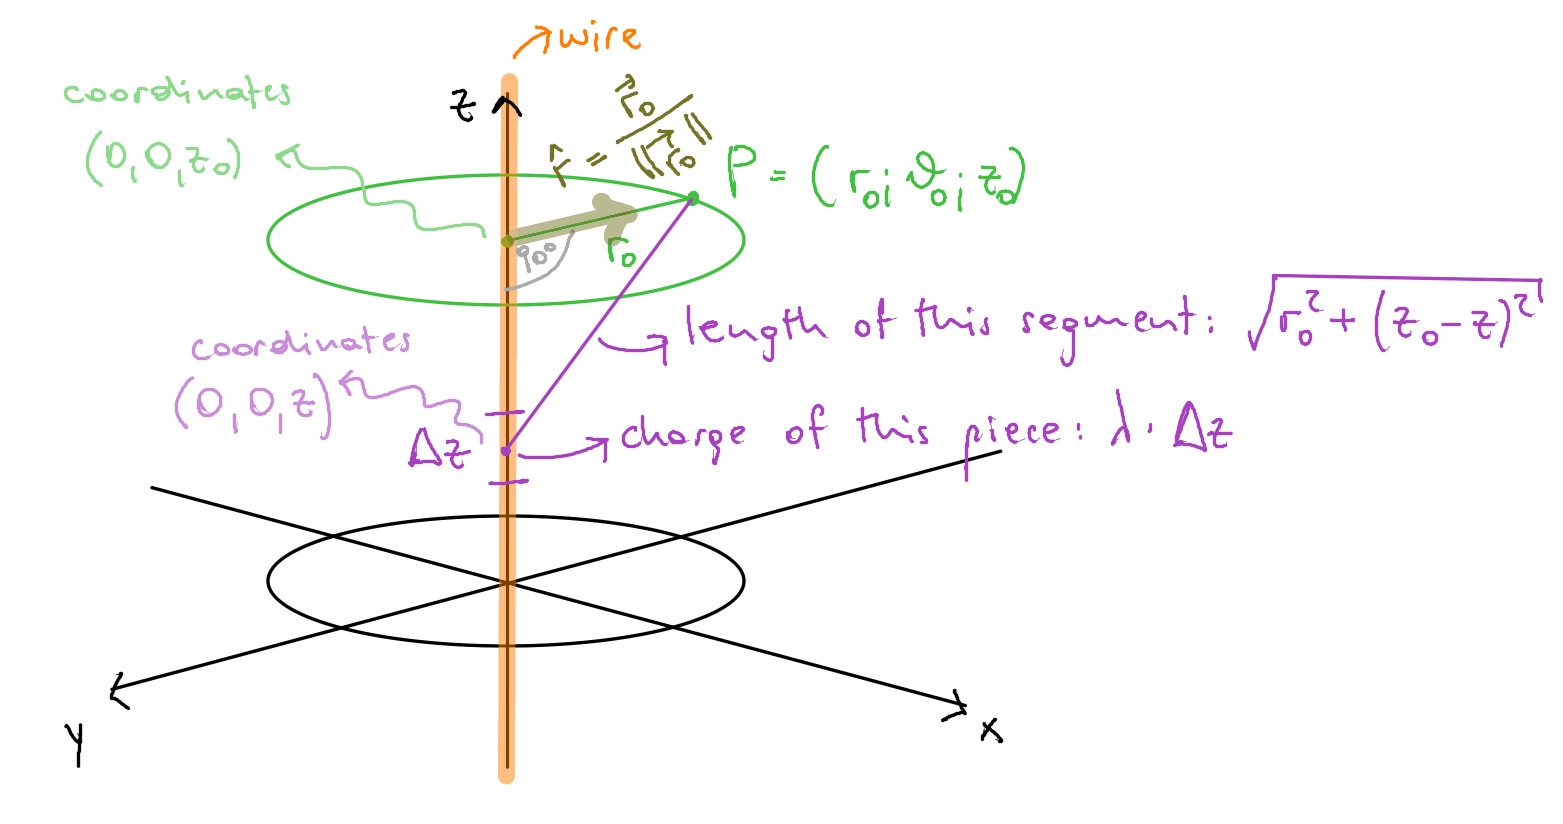 wire
coordinates
(0,0,z₀)
z
r̂ = r⃗₀ / ‖r⃗₀‖
P = (r₀; ϑ₀; z₀)
90°
r₀
length of this segment: √(r₀² + (z₀-z)²)
coordinates
(0,0,z)
Δz
charge of this piece: λ · Δz
y
x